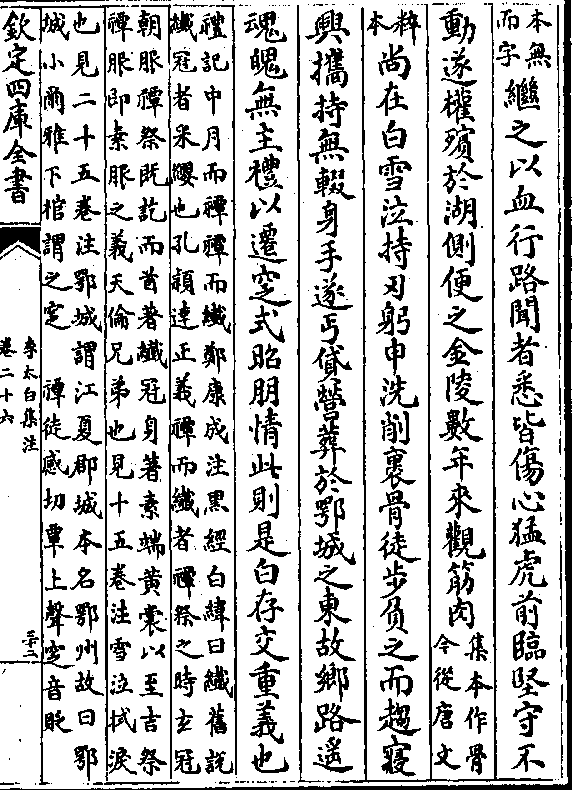 本無
而字
繼之以血行路聞者悉皆傷心猛虎前臨堅守不
動遂權殯於湖側便之金陵數年來觀筋肉
集本作骨
今從唐文
粹
本
尚在白雪泣持刃躬申洗削裹骨徒步負之而趨寢
興攜持無輟身手遂丐貸營葬於鄂城之東故鄉路遥
魂魄無主禮以遷窆式昭朋情此則是白存交重義也
禮記中月而禫禫而纖鄭康成注黒經白緯曰纖舊說
纖冠者采纓也孔穎達正義禫而纖者禫祭之時玄冠
朝服禫祭既訖而首著纖冠身著素端黄裳以至吉祭
禫服即素服之義天倫兄弟也見十五卷注雪泣拭淚
也見二十五卷注鄂城謂江夏郡城本名鄂州故曰鄂
城小爾雅下棺謂之窆
禫徒感切覃上聲窆音貶
欽定四庫全書
李太白集注
卷二十六
三十二